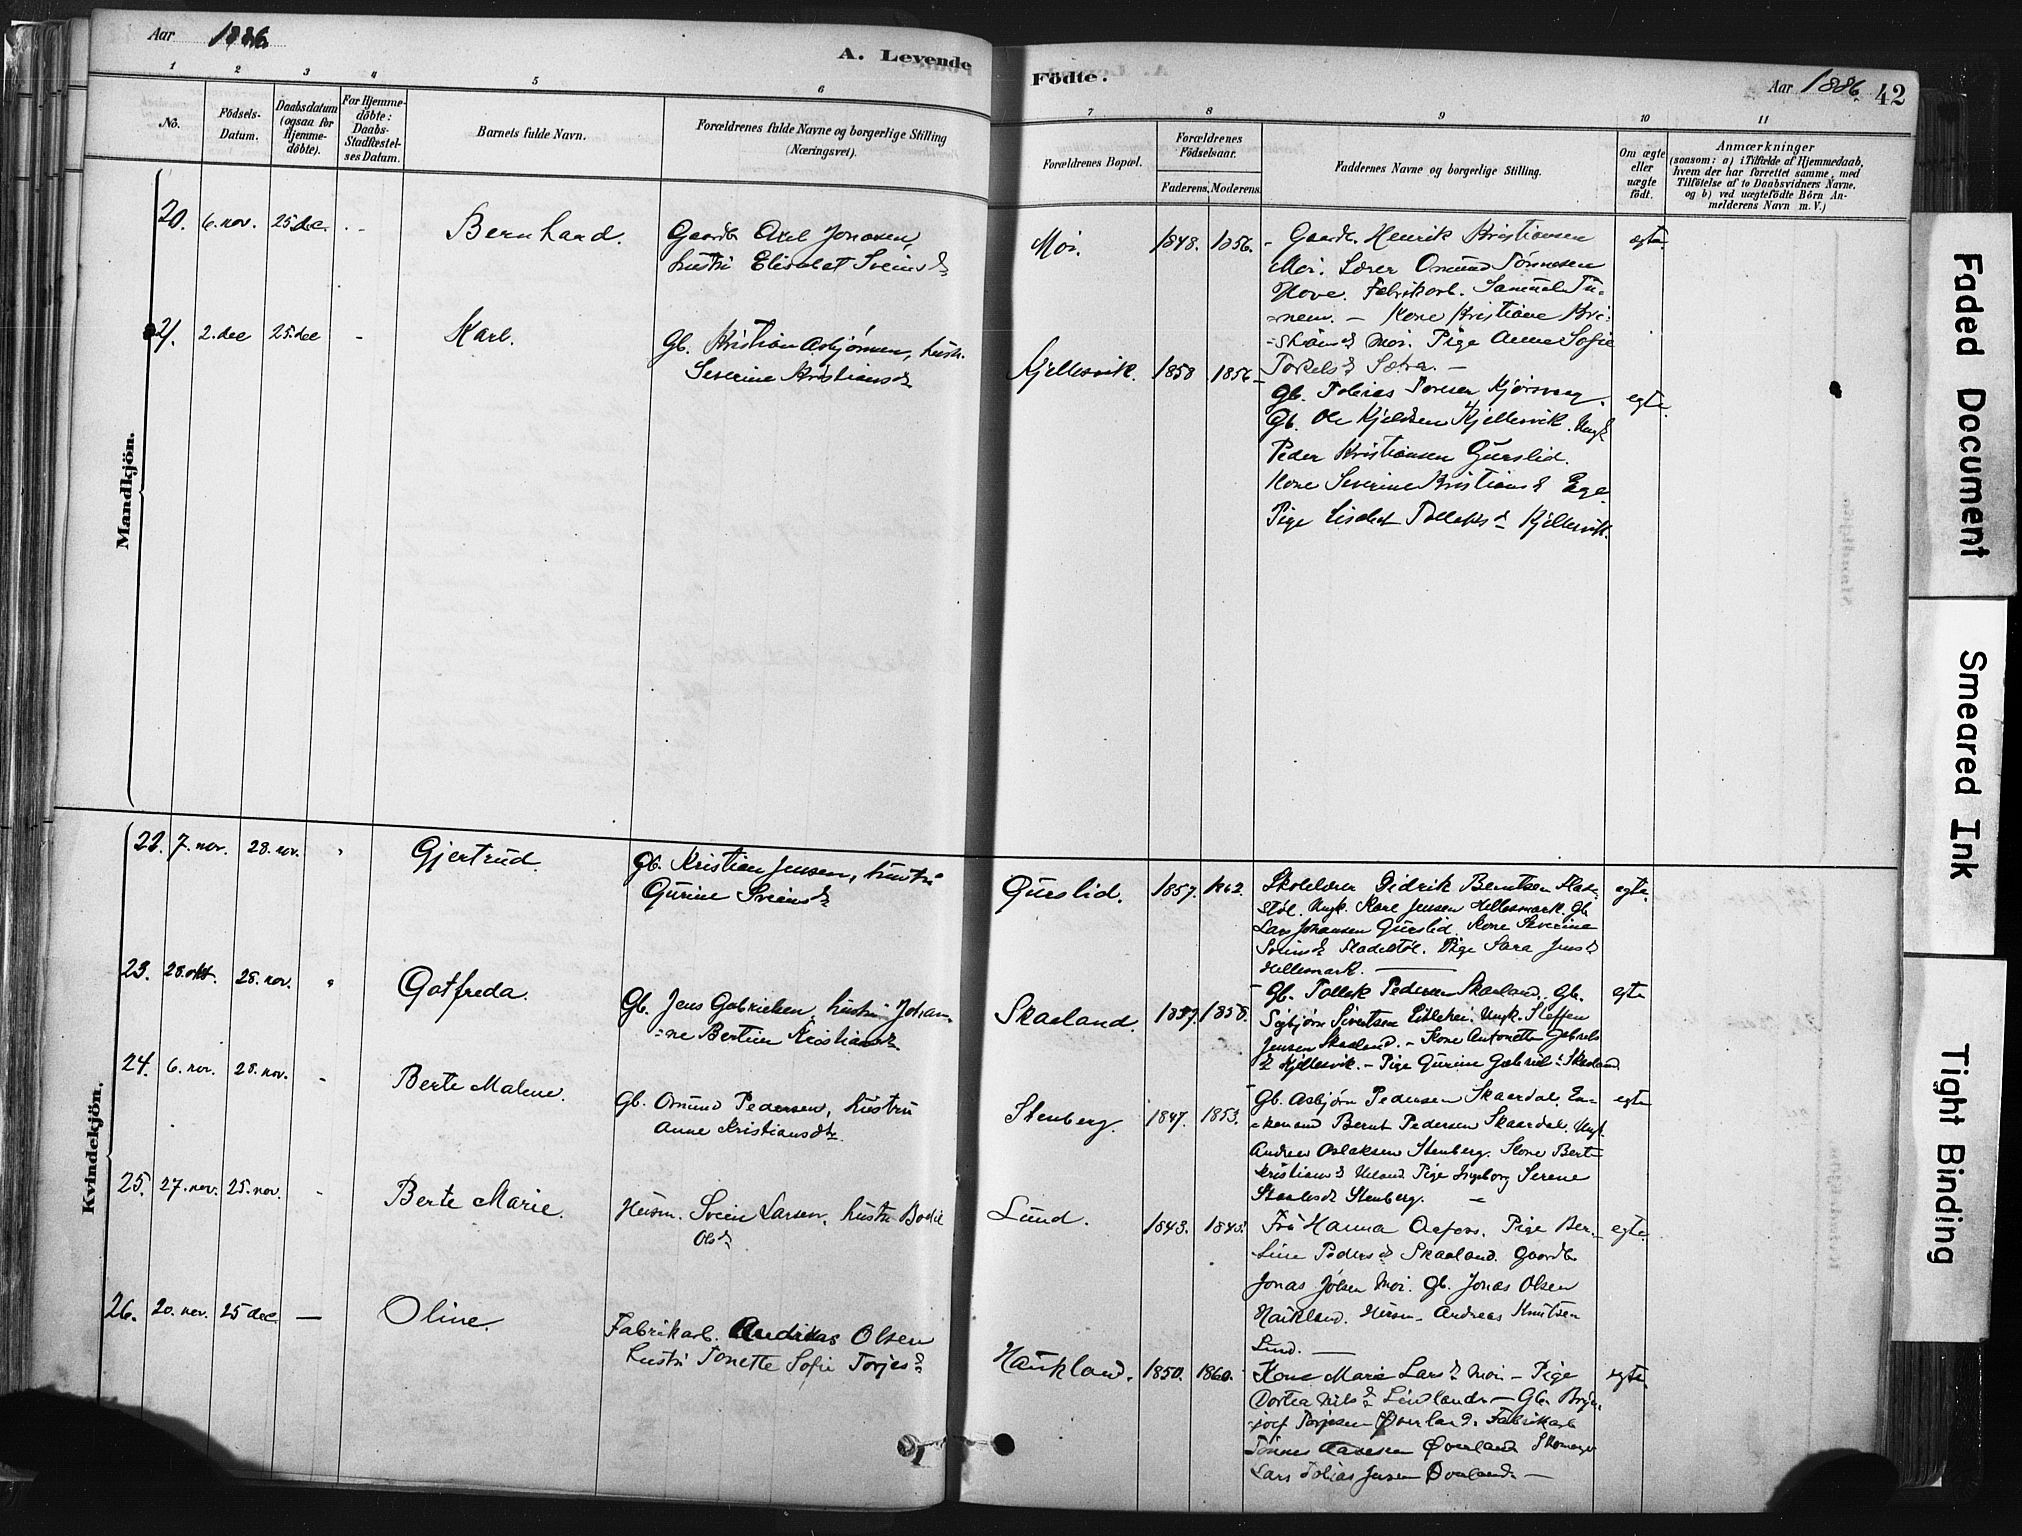 Aar 1886.
A. Levende
Födte.
Aar 1886.
42
1 2 3 4 5 6
7 8 9 10 11
No.
Födsels-
Datum.
Daabsdatum
(ogsaa for
Hjemme-
döbte).
For Hjemme-
döbte:
Daabs-
Stadfæstel-
ses Datum.
Barnets fulde Navn.
Forældrenes fulde Navne og borgerlige Stilling
(Næringsvei).
Forældrenes Bopæl.
Forældrenes
Födselsaar.
Faderens. Moderens.
Faddernes Navne og borgerlige Stilling.
Om ægte
eller
uægte
födt.
Anmærkninger
(saasom: a) i Tilfælde af Hjemmedaab,
hvem der har forrettet samme, med
Tilföielse af to Daabsvidners Navne,
og b) ved uægtefödte Börn An-
melderens Navn m. V.)
Mandkjön.
20. 6. nov. 25 dec. Bernhard.
Gaardb. Axel Jonasen,
hustru Elisabet Sveinsd.
Moi. 1848. 1856.
Gaardb. Henrik Kristiansen
Moi. Lærer Omund Tönnesen
Hove. Fabrikarb. Samuel Tu-
nem. - Kone Kristiane Kri-
stiansd. Moi. Pige Anne Sofie
Torkelsd. Sætra. -
ægte
21. 2. dec 25. dec - Karl.
Gb. Kristian Asbjörnsen, hustr.
Severine Kristiansd.
Kjellesvik. 1858 1856
Gb. Tobias
Gb. Ole Kjeldsen Kjellesvik. Ungk.
Peder Kristiansen Gurslid.
Kone Severine Kristiansd. Ege
Pige Lisabet Tollaksd. Kjellesvik.
egte.
Kvindekjön.
22. 7. nov. 28. nov. Gjertrud.
Gb. Kristian Jensen, hustru
Gurine Sveinsd.
Gurslid. 1857. 1862.
Skolelærer Didrik Berntsen Stade-
stöl. Ungk. Karl Jensen Hellesmark. Gb.
Lars Johansen Gurslid. Kone Severine
Sveinsd. Stadestöl. Pige Sara Jensd.
Hellesmark.
egte.
23. 28. okt. 28. nov. Gotfreda.
Gb. Jens Gabrielsen, hustru Johan-
ne Bertine Kristiansd.
Skaaland. 1857. 1858.
Gb. Tollak Pedersen Skaaland. Gb.
Sigbjörn Sivertsen Ungk. Steffen
Jensen Skaaland. - Kone Antonette Gabriels
d. Kjellesvik. - Pige Gurine Gabrielsd. Skaaland.
egte
24. 6. nov. 28. nov. - Berte Malene.
Gb. Omund Pedersen, hustru
Anne Kristiansdtr.
Stenberg. 1847. 1853.
Gb. Asbjörn Pedersen Skaardal. En-
kemand Bernt Pedersen Skaardal. Ungk.
Andreas Aslaksen Stenberg. Kone Berte
Kristiansd. Ueland. Pige Ingeborg Serene
Stenberg. -
egte
25. 27. nov. 25. nov. - Berte Marie.
Husm. Svein Larsen, hustru Bodil
Olsd.
Lund. 1843. 1845.
Fru Hanna Pige Ber-
tine Pedersd. Skaaland. Gaardb.
Jonas Jölsen Moi. Gb. Jonas Olsen
Haukland. Husm. Andreas Knutsen
Lund.
egte
26. 20. nov. 25 dec - Oline.
Fabrikarb. Andreas Olsen
hustru Tonette Sofie Torjesd.
Haukland. 1850. 1860.
Kone Marie Larsd. Moi - Pige
Dortea Nilsd. Lindland. - Gb. Bryn-
jolf Torjesen Överland. Fabrikarb.
Tönnes Överland Skomager
Lars Tobias Jensen Överland. -
egte.
Faded Document
Smeared Ink
Tight Binding